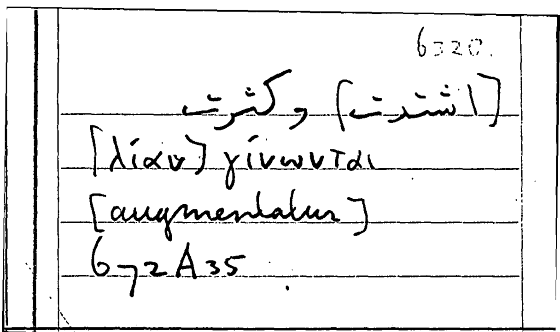 6320.
[اشتدت] وكثرت
[λίαν] γίνωνται
[augmentatur]
672A35